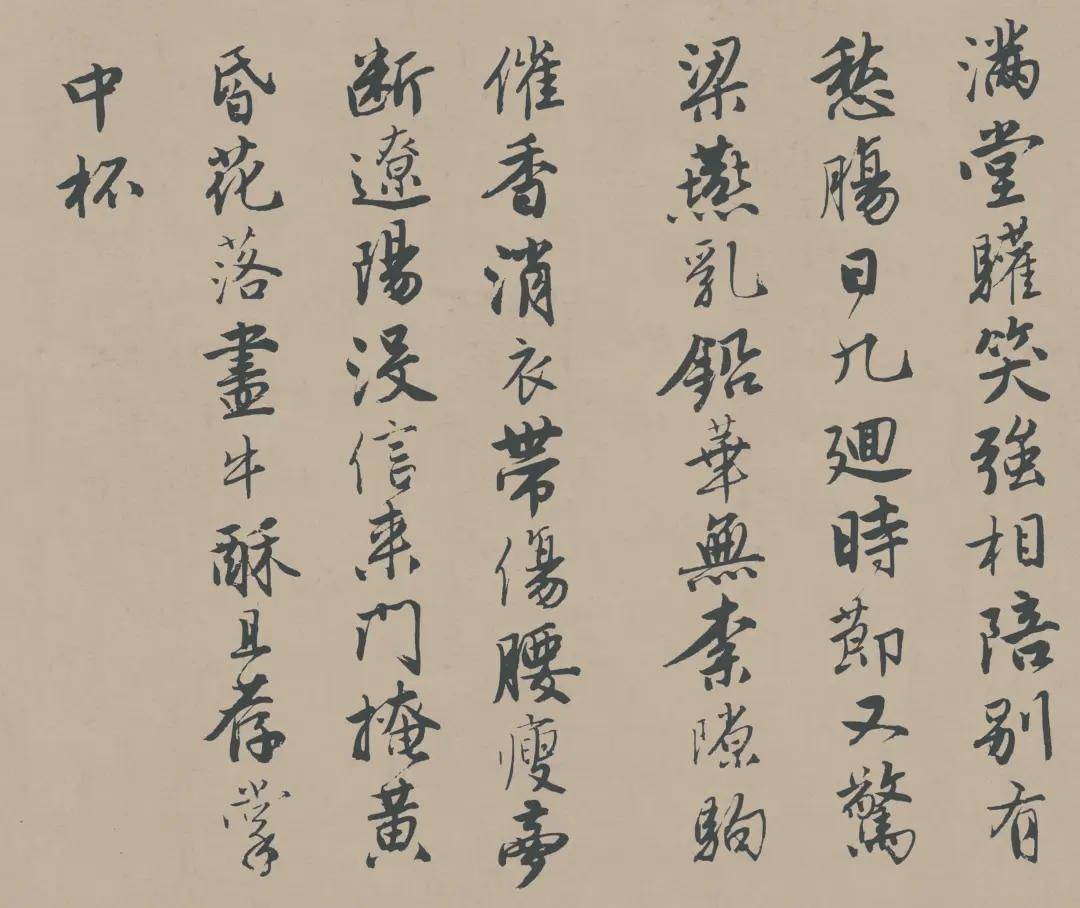 満堂驩笑強相陪別有
愁腸日九廻時節又驚
梁燕乳鉛華無柰隙駒
催香消衣帶傷腰瘦夢
断遼陽没信来門掩黄
昏花落盡牛酥且荐掌
中杯